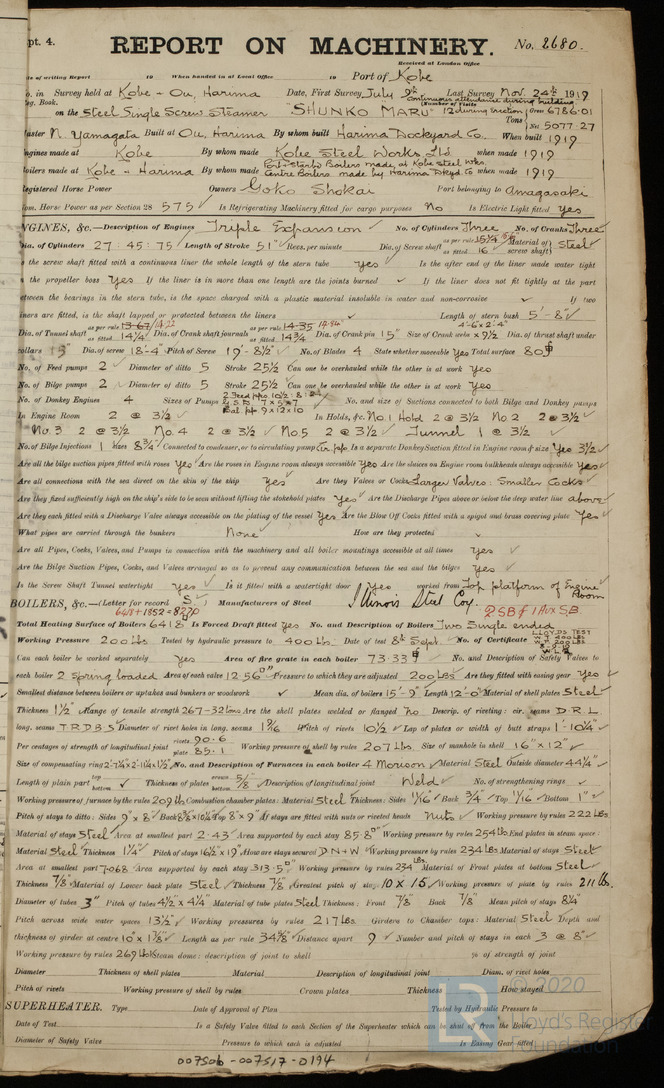 pt. 4.
REPORT ON MACHINERY. No. 2680.
Received at London Office
of writing Report 19 When handed in at Local Office 19 Port of Kobe
in Survey held at Kobe & Ou, Harima Date, First Survey July 9th Last Survey Nov. 24th 1919
Book. Continuous attendance during building
on the Steel Single Screw Steamer "SHUNKO MARU" 12 during erection Tons Gross 6786.01 Net 5077.27
N. Yamagata Built at Ou, Harima By whom built Harima Dockyard Co. When built 1919
Engines made at Kobe By whom made Kobe Steel Works Ltd when made 1919
Boilers made at Kobe & Harima By whom made Port & Starbd Boilers made at Kobe Steel Wks. Centre Boilers made by Harima Dkyd. Co when made 1919
Registered Horse Power Owners Goko Shokai Port belonging to Amagasaki
Nom. Horse Power as per Section 28 575 Is Refrigerating Machinery fitted for cargo purposes No Is Electric Light fitted Yes
ENGINES, &c.—Description of Engines Triple Expansion No. of Cylinders Three No. of Cranks Three
Dia. of Cylinders 27 : 45 : 75 Length of Stroke 51" Revs. per minute Dia. of Screw shaft as per rule 15 1/4 as fitted 16 Material of screw shaft Steel
Is the screw shaft fitted with a continuous liner the whole length of the stern tube yes Is the after end of the liner made water tight
in the propeller boss Yes If the liner is in more than one length are the joints burned If the liner does not fit tightly at the part
between the bearings in the stern tube, is the space charged with a plastic material insoluble in water and non-corrosive If two
liners are fitted, is the shaft lapped or protected between the liners Length of stern bush 5'-8"
Dia. of Tunnel shaft as per rule 13.67 14.22 as fitted 14 1/4 Dia. of Crank shaft journals as per rule 14.35 14.96 as fitted 14 3/4 Dia. of Crank pin 15" Size of Crank webs x 9 1/2 Dia. of thrust shaft under
collars 15" Dia. of screw 18'-4" Pitch of Screw 19'-8 1/2" No. of Blades 4 State whether moveable Yes Total surface 80
No. of Feed pumps 2 Diameter of ditto 5 Stroke 25 1/2 Can one be overhauled while the other is at work yes
No. of Bilge pumps 2 Diameter of ditto 5 Stroke 25 1/2 Can one be overhauled while the other is at work yes
No. of Donkey Engines 4 Sizes of Pumps G.S.D. 7 x 5 x 7 Bal. pp. 9 x 12 x 10 No. and size of Suctions connected to both Bilge and Donkey pumps
In Engine Room 2 @ 3 1/2 In Holds, &c. No. 1 Hold 2 @ 3 1/2 No 2 2 @ 3 1/2
No. 3 2 @ 3 1/2 No. 4 2 @ 3 1/2 No. 5 2 @ 3 1/2 Tunnel 1 @ 3 1/2
No. of Bilge Injections 1 sizes 8 3/4 Connected to condenser, or to circulating pump Is a separate Donkey Suction fitted in Engine room & size Yes 3 1/2
Are all the bilge suction pipes fitted with roses Yes Are the roses in Engine room always accessible Yes Are the sluices on Engine room bulkheads always accessible Yes
Are all connections with the sea direct on the skin of the ship Yes Are they Valves or Cocks Larger Valves: Smaller Cocks
Are they fixed sufficiently high on the ship's side to be seen without lifting the stokehold plates Yes Are the Discharge Pipes above or below the deep water line above
Are they each fitted with a Discharge Valve always accessible on the plating of the vessel Yes Are the Blow Off Cocks fitted with a spigot and brass covering plate Yes
What pipes are carried through the bunkers None How are they protected
Are all Pipes, Cocks, Valves, and Pumps in connection with the machinery and all boiler mountings accessible at all times yes
Are the Bilge Suction Pipes, Cocks, Valves arranged so as to prevent any communication between the sea and the bilges yes
Is the Screw Shaft Tunnel watertight yes Is it fitted with a watertight door Yes worked from Top platform of Engine Room
BOILERS, &c.—(Letter for record S) Manufacturers of Steel Illinois Steel Coy.
6418 + 1852 = 8270 2 SB & 1 Aux S.B.
Total Heating Surface of Boilers 6418 Is Forced Draft fitted Yes No. and Description of Boilers Two Single ended
Working Pressure 200 lbs Tested by hydraulic pressure to 400 lbs. Date of test 8th Sept. No. of Certificate LLOYDS TEST
Can each boiler be worked separately Yes Area of fire grate in each boiler 73.33 No. and Description of Safety Valves to
each boiler 2 spring loaded Area of each valve 12.56" Pressure to which they are adjusted 200 lbs Are they fitted with easing gear Yes
Smallest distance between boilers or uptakes and bunkers or woodwork Mean dia. of boilers 15'-9" Length 12'-0" Material of shell plates Steel
Thickness 1 1/2 Range of tensile strength 26.7-32 tons Are the shell plates welded or flanged No Descrip. of riveting: cir. seams D.R.L
long. seams T R D B S Diameter of rivet holes in long. seams 1 9/16 Pitch of rivets 10 1/2 Lap of plates or width of butt straps 1'-10 1/4
Per centages of strength of longitudinal joint rivets 90.6 plate 85.1 Working pressure of shell by rules 207 lbs. Size of manhole in shell 16" x 12"
Size of compensating ring No. and Description of Furnaces in each boiler 4 Morison Material Steel Outside diameter 44 1/4"
Length of plain part top bottom Thickness of plates crown bottom 5/8" Description of longitudinal joint Weld No. of strengthening rings
Working pressure of furnace by the rules 209 lb Combustion chamber plates: Material Steel Thickness: Sides 11/16" Back 3/4" Top 11/16 Bottom 1"
Pitch of stays to ditto: Sides 9" x 8" Back Top 8" x 9" If stays are fitted with nuts or riveted heads Nuts Working pressure by rules 222 lbs.
Material of stays Steel Area at smallest part 2.43 Area supported by each stay 85.8" Working pressure by rules 254 lb End plates in steam space:
Material Steel Thickness 1 1/4" Pitch of stays 16 1/2 x 19" How are stays secured D N + W Working pressure by rules 234 lbs Material of stays Steel
Area at smallest part 7.068 Area supported by each stay 313.5" Working pressure by rules 234 lbs. Material of Front plates at bottom Steel
Thickness 7/8 Material of Lower back plate Steel Thickness 7/8 Greatest pitch of stays 10 x 15 Working pressure of plate by rules 211 lbs.
Diameter of tubes 3" Pitch of tubes 4 1/2 x 4 1/4" Material of tube plates Steel Thickness: Front 7/8" Back 7/8" Mean pitch of stays 8 3/4"
Pitch across wide water spaces 13 1/2" Working pressures by rules 217 lbs. Girders to Chamber tops: Material Steel Depth and
thickness of girder at centre 10" x 1 7/8" Length as per rule 34 5/8" Distance apart 9 Number and pitch of stays in each 3 @ 8"
Working pressure by rules 269 lbs Steam dome: description of joint to shell % of strength of joint
Diameter Thickness of shell plates Material Description of longitudinal joint Diam. of rivet holes
Pitch of rivets Working pressure of shell by rules Crown plates Thickness How stayed
SUPERHEATER. Type Date of Approval of Plan Tested by Hydraulic Pressure to
Date of Test Is a Safety Valve fitted to each Section of the Superheater which can be shut off from the Boiler
Diameter of Safety Valve Pressure to which each is adjusted Is Easing Gear fitted
007506 - 007517 - 0194
© 2020
Lloyd's Register
Foundation